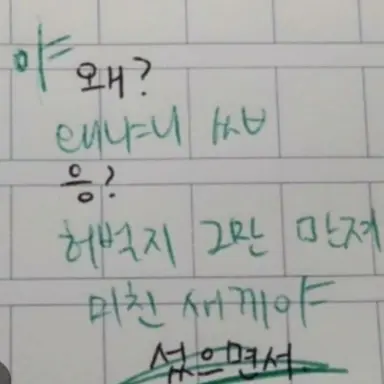 야
왜?
태냐느니 씨ㅂ
응?
허벅지 그만 만져
미친 새끼야
섰으면서